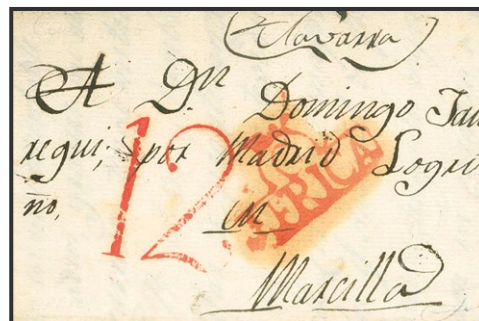 Navarra
A Dn Domingo Jau
regui; por Madrid Logro
ño,
12
AFRICA
en
Marcilla